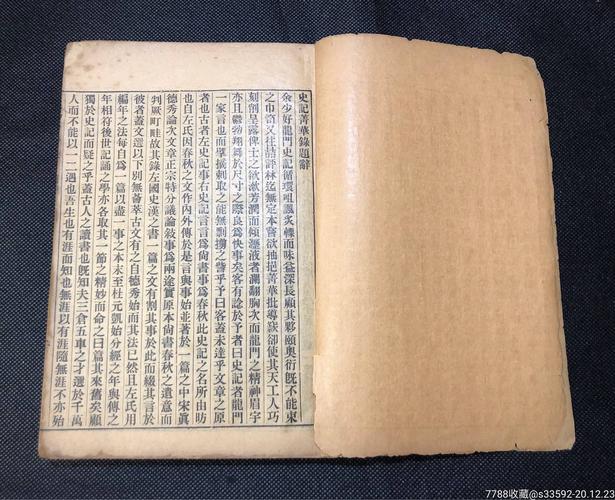 史記菁華錄題辭
余少好龍門史記循環咀諷炙輠而味益深長顧其夥頤奧衍既不能束
之巾笥又往詰評林迄無定本嘗欲抽挹菁華批導窾卻使其天工人巧
刻削呈露俾士之欲漱芳潤而傾瀝液者瀾翻胸次而龍門之精神眉宇
亦且鬱勃翔舞於尺寸之際良爲快事矣客有諗於予者曰史記者龍門
一家言也而寧摘刺取之能無剽掇之譽乎予曰客蓋未達乎文章之原
者也古者左史記事右史記言言爲尙書事爲春秋此史記之名所由昉
也自左氏因春秋之文作內外傳於是言與事始並著於一篇之中宋眞
德秀論次文章正宗特分議論敘事爲兩途實原本尙書春秋之遺意而
判厥町畦故其錄左國史漢之書一篇之文有割其事於此而綴其言於
彼者蓋文選以下別無薈萃古文有之自德秀始而其法已然且左氏用
編年之法每自爲一篇以盡一事之本末至杜元凱始分經之年與傳之
年相符後世記誦之學亦各取其一節之精妙而命之曰篇其來舊矣顧
獨於史記而疑之乎蓋古人之讀書也既知夫三倉五車之才選於千萬
人而不能以一二遇也吾生也有涯而知也無涯以有涯隨無涯不亦殆
7788收藏@s33592-20.12.23